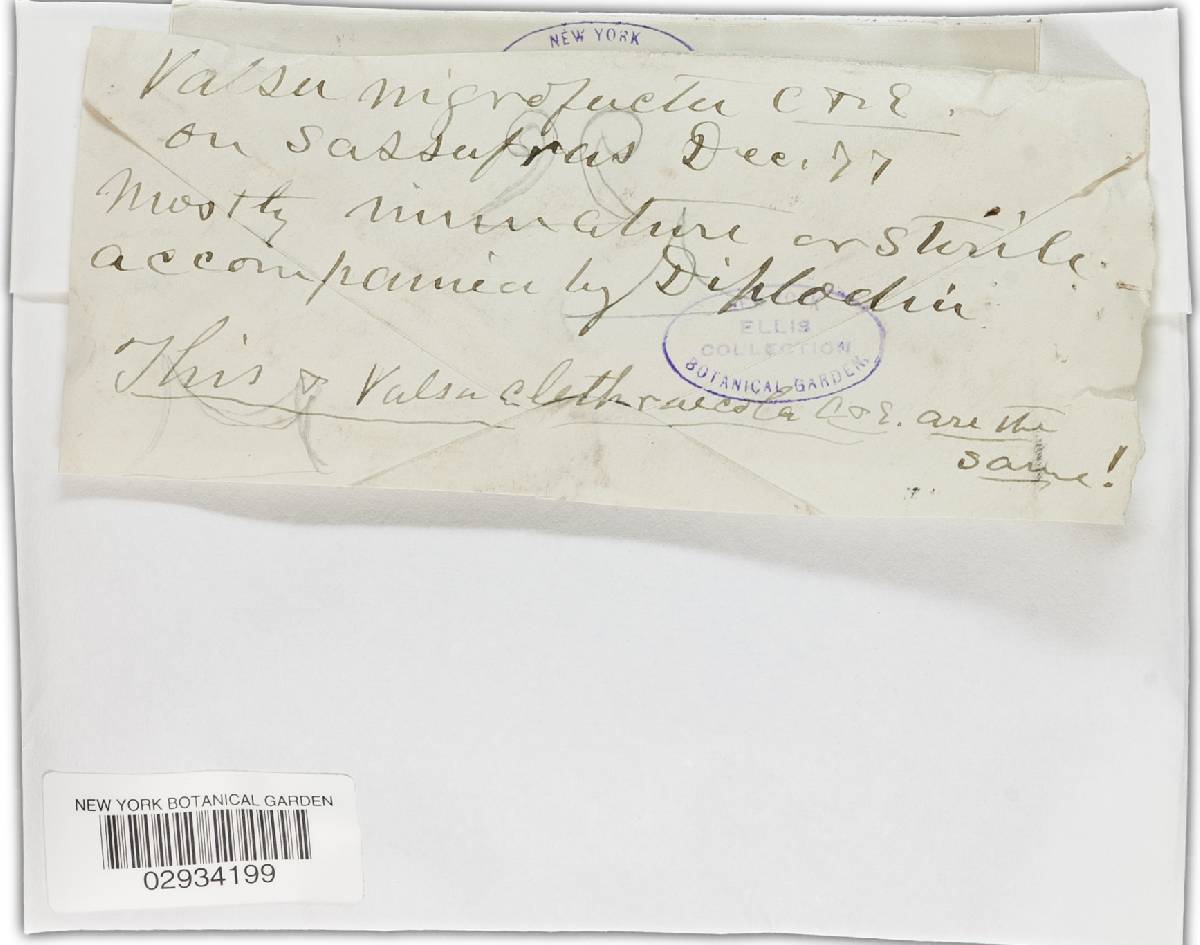 NEW YORK
Valsa nigrofacta C & E.
on Sassafras Dec. 77
Mostly immature or sterile
accompanied by Diplodia
ELLIS
COLLECTION
BOTANICAL GARDEN
This & Valsa clethraecola C & E. are the
same!
NEW YORK BOTANICAL GARDEN
02934199